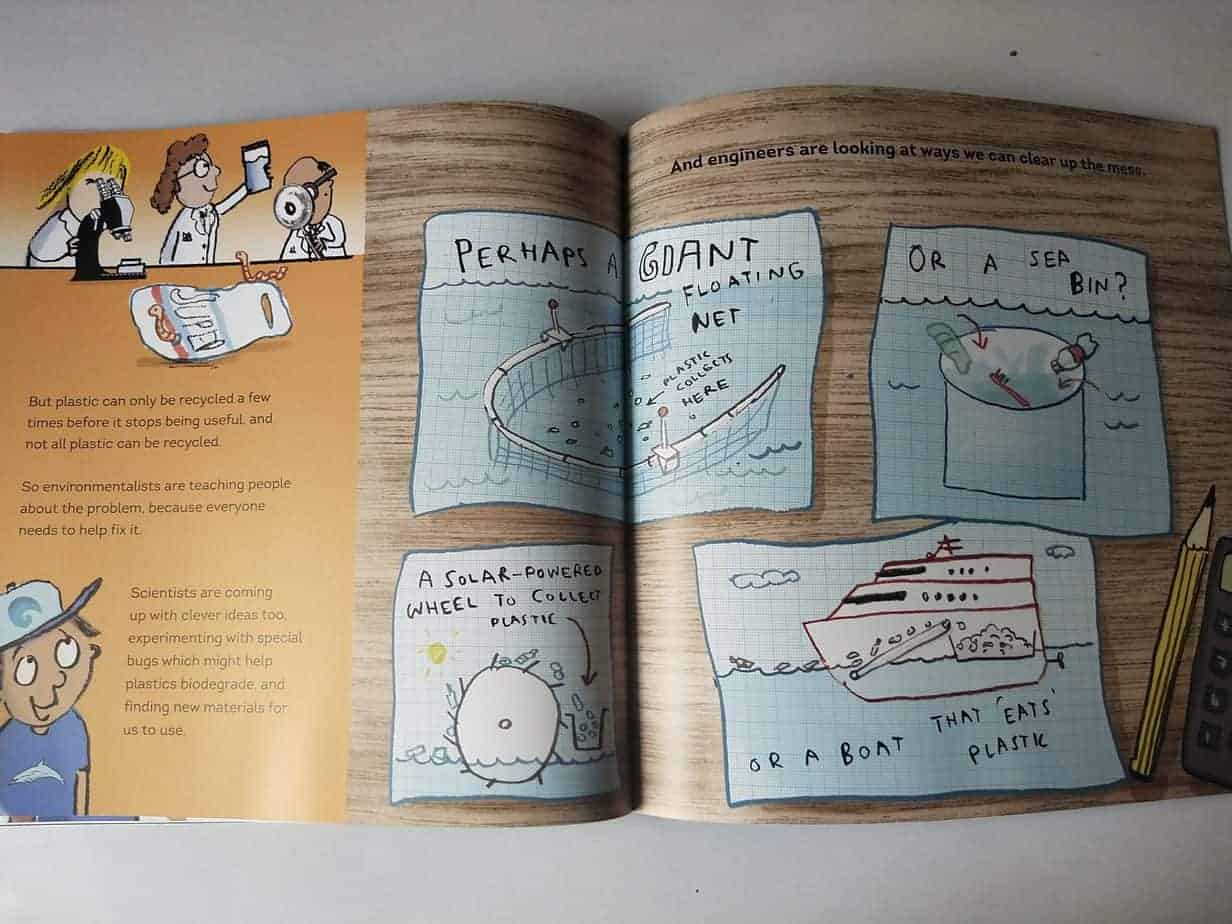 SUPER
But plastic can only be recycled a few
times before it stops being useful, and
not all plastic can be recycled.
So environmentalists are teaching people
about the problem, because everyone
needs to help fix it.
Scientists are coming
up with clever ideas too,
experimenting with special
bugs which might help
plastics biodegrade, and
finding new materials for
us to use.
And engineers are looking at ways we can clear up the mess.
PERHAPS A GIANT
FLOATING
NET
PLASTIC
COLLECTS
HERE
OR A SEA
BIN?
A SOLAR-POWERED
WHEEL TO COLLECT
PLASTIC
OR A BOAT THAT 'EATS'
PLASTIC